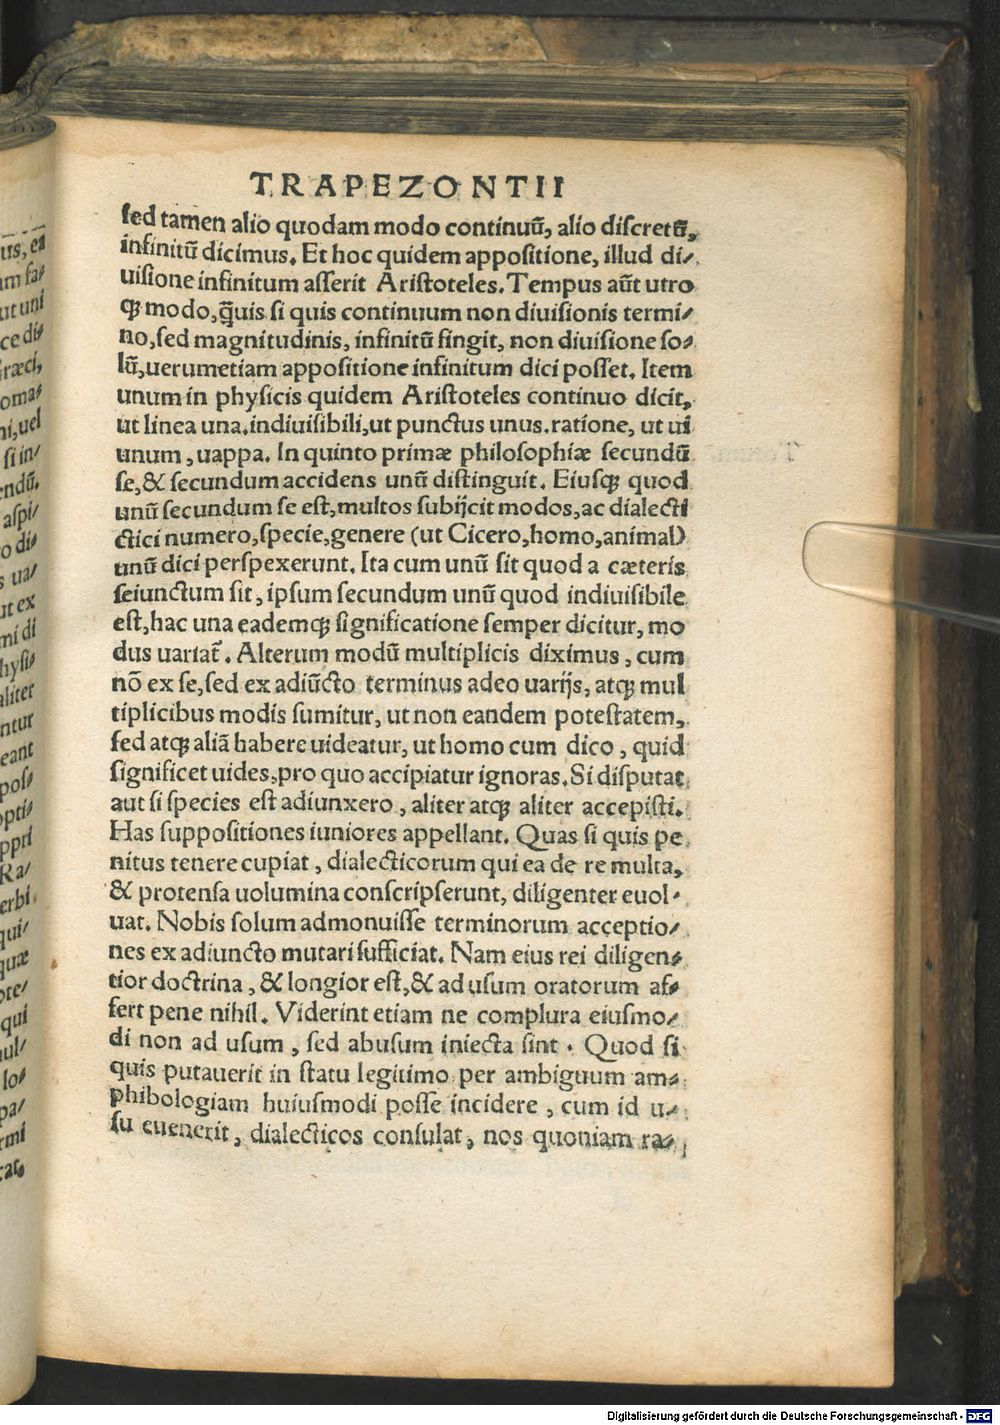 TRAPEZONTII
sed tamen alio quodam modo continuū, alio discretū,
infinitū dicimus. Et hoc quidem appositione, illud di⸗
uisione infinitum asserit Aristoteles. Tempus aūt utro
qꝫ modo, q̄uis si quis continuum non diuisionis termi⸗
no, sed magnitudinis, infinitū fingit, non diuisione so⸗
lū, uerumetiam appositione infinitum dici posset. Item
unum in physicis quidem Aristoteles continuo dicit,
ut linea una. indiuisibili, ut punctus unus. ratione, ut ui
unum, uappa. In quinto primæ philosophiæ secundū
se, & secundum accidens unū distinguit. Eiusqꝫ quod
unū secundum se est, multos subijcit modos, ac dialecti
ctici numero, specie, genere (ut Cicero, homo, animal)
unū dici perspexerunt. Ita cum unū sit quod a cæteris
seiunctum sit, ipsum secundum unū quod indiuisibile
est, hac una eademqꝫ significatione semper dicitur, mo
dus uariat᷑. Alterum modū multiplicis diximus, cum
nō ex se, sed ex adiūcto terminus adeo uarijs, atqꝫ mul
tiplicibus modis sumitur, ut non eandem potestatem,
sed atqꝫ aliā habere uideatur, ut homo cum dico, quid
significet uides, pro quo accipiatur ignoras. Si disputat
aut si species est adiunxero, aliter atqꝫ aliter accepisti.
Has suppositiones iuniores appellant. Quas si quis pe
nitus tenere cupiat, dialecticorum qui ea de re multa,
& protensa uolumina conscripserunt, diligenter euol⸗
uat. Nobis solum admonuisse terminorum acceptio⸗
nes ex adiuncto mutari sufficiat. Nam eius rei diligen⸗
tior doctrina, & longior est, & ad usum oratorum af⸗
fert pene nihil. Viderint etiam ne complura eiusmo⸗
di non ad usum, sed abusum iniecta sint. Quod si
quis putauerit in statu legitimo per ambiguum am⸗
phibologiam huiusmodi posse incidere, cum id u⸗
su euenerit, dialecticos consulat, nos quoniam ra⸗
Digitalisierung gefördert durch die Deutsche Forschungsgemeinschaft - DFG